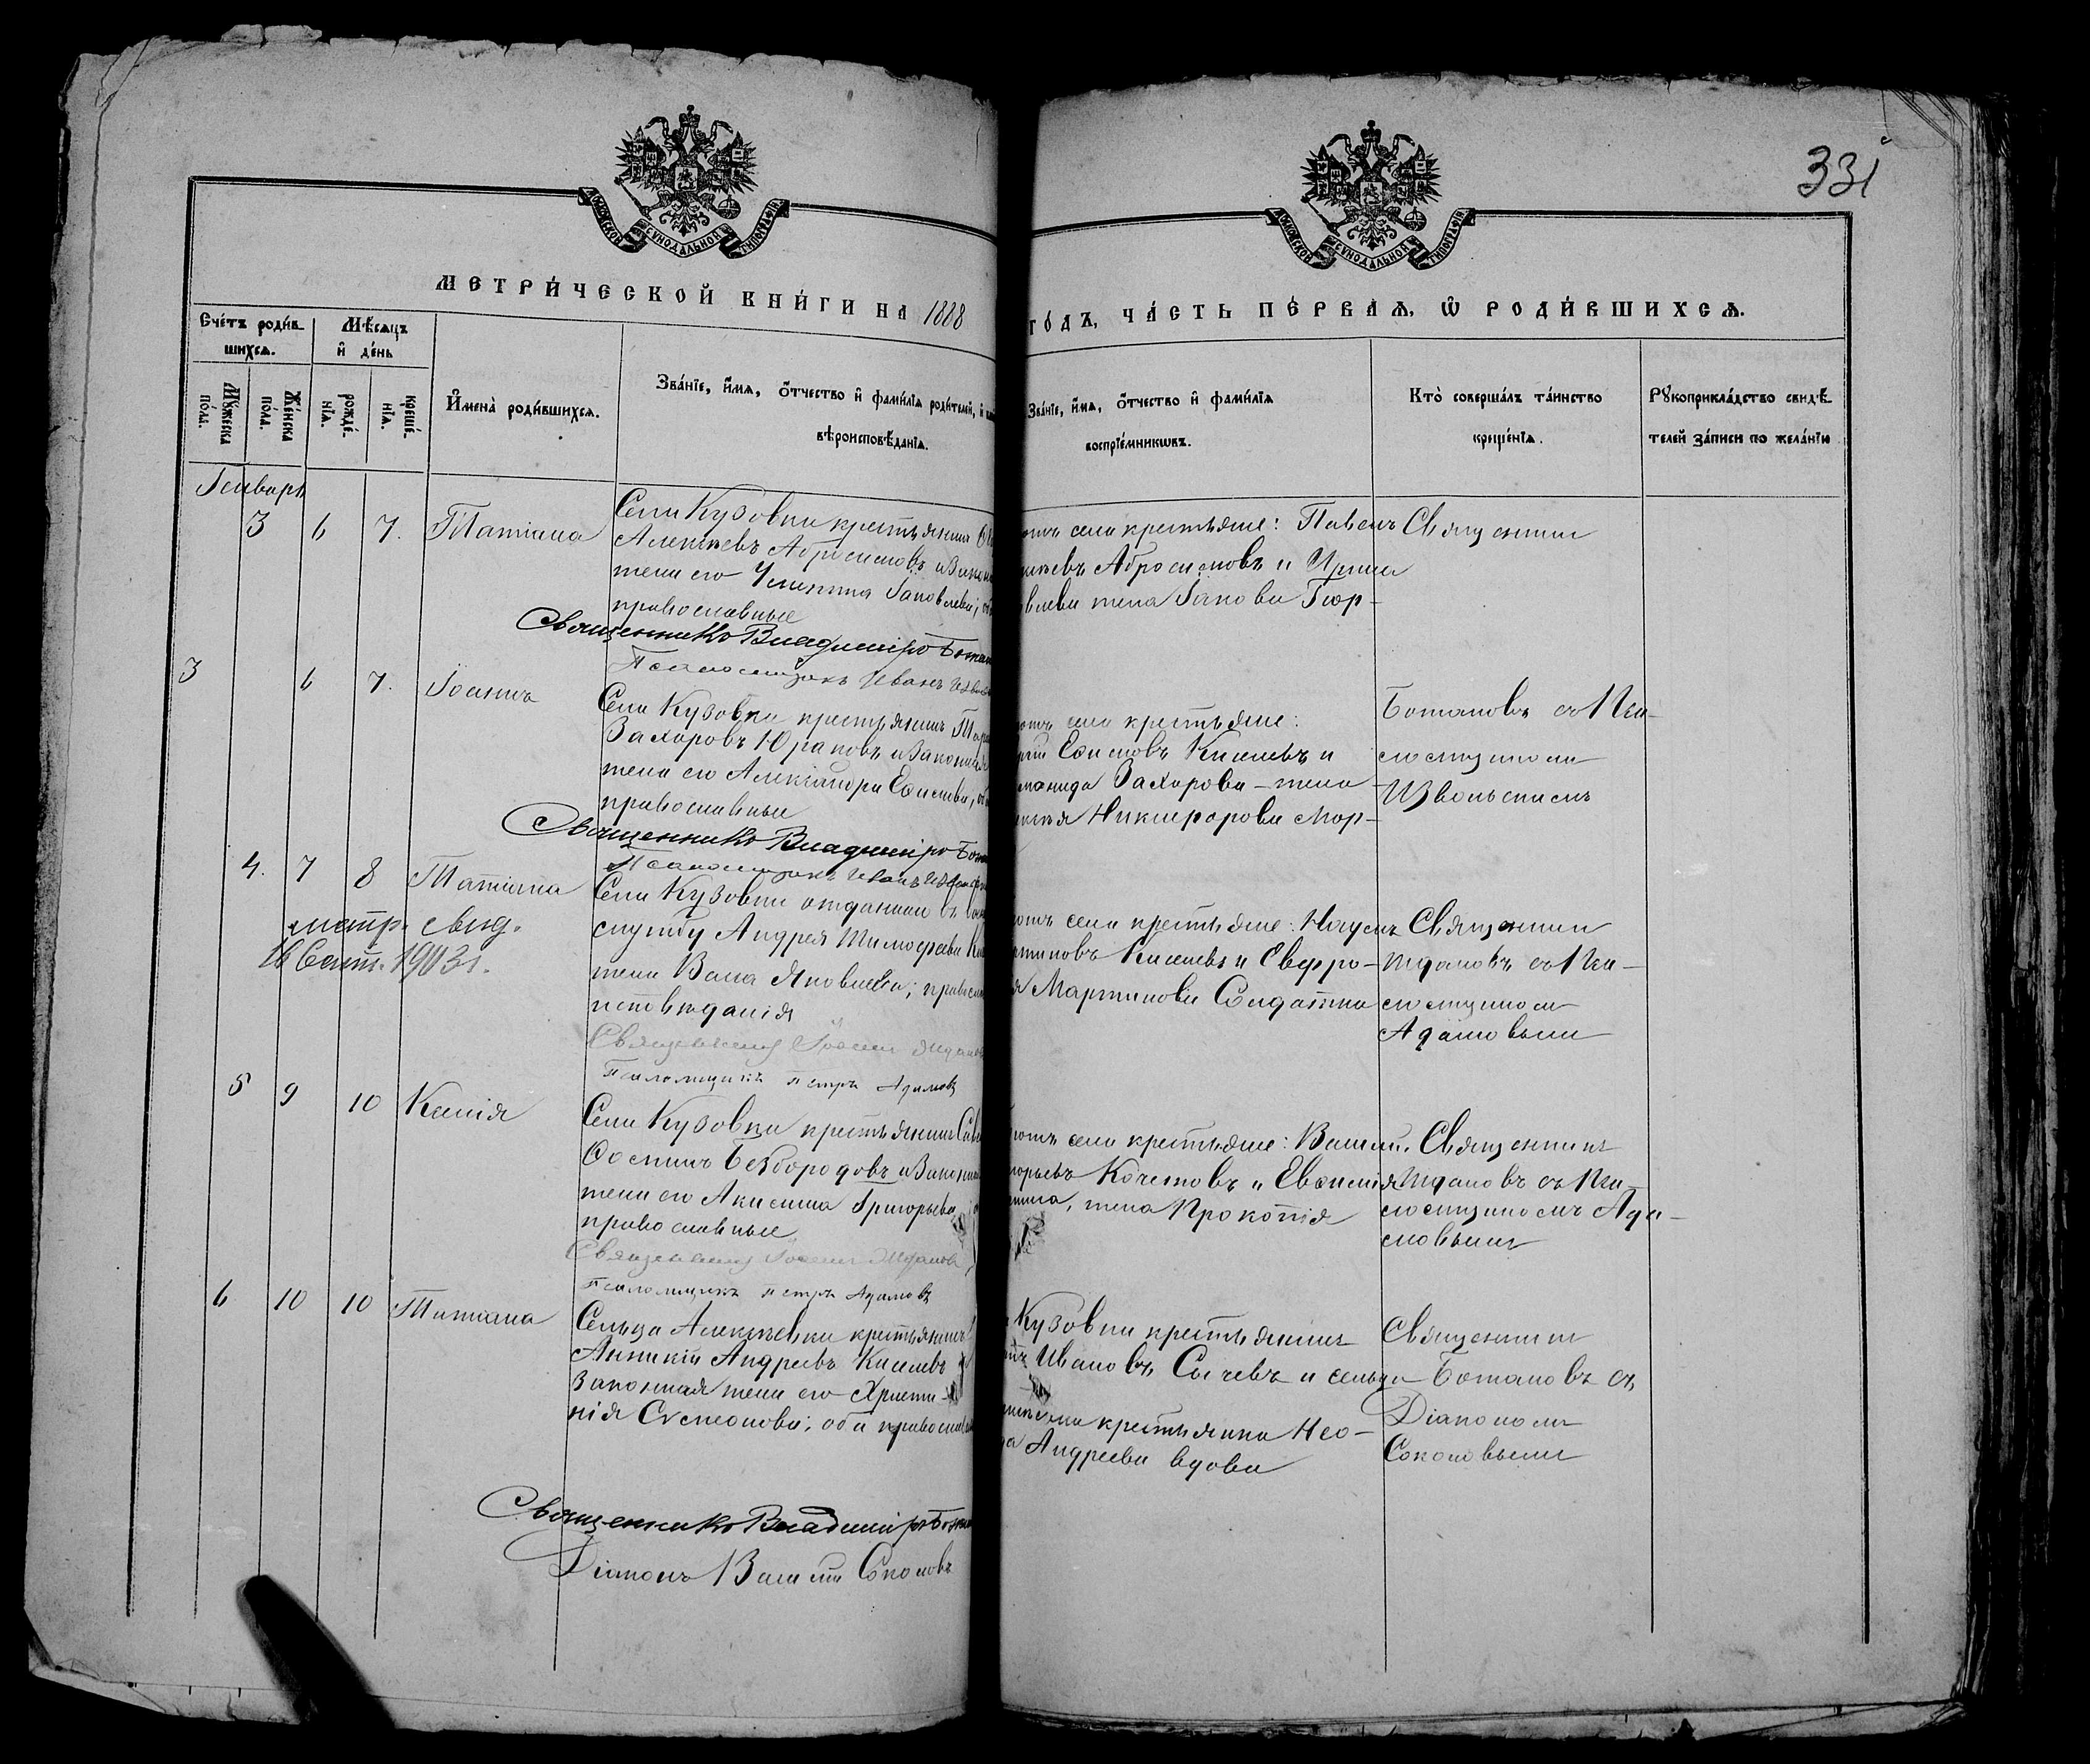 331
МОСКОВСКОЙ СѴНОДАЛЬНОЙ ТИПОГРАФІИ
МОСКОВСКОЙ СѴНОДАЛЬНОЙ ТИПОГРАФІИ
МЕТРИ́ЧЕСКОЙ КНИ́ГИ НА 1888
ГО́ДЪ, ЧА́СТЬ ПЕ́РВАЯ, Ѡ҆ РОДИ́ВШИХСЯ.
Сче́тъ роди́в-
шихся.
Мѣ́сяцъ
и҆ де́нь
Мꙋ́жеска по́ла.
Же́нска по́ла.
рожде́-
нїя.
креще́-
нїя.
И҆мена̀ роди́вшихся.
Зва́нїе, и҆́мя, ѻ҆́тчество и҆ фами́лїя роди́телей, и҆
вѣроисповѣ́данїя.
Зва́нїе, и҆́мя, ѻ҆́тчество и҆ фами́лїя
воспрїе́мникѡвъ.
Кто̀ соверша́лъ та́инство
креще́нїя.
Рꙋкоприкла́дство свидѣ́-
телей за́писи по жела́нїю
Генварь
3 6 7. Татіана
Села Кузовки крестьянинъ
Алексѣевъ Абросимовъ и законная
жена его Устинія Іаковлева;
православные
Священникъ Владиміръ
Псаломщикъ Иванъ
села крестьяне: Павелъ
Абросимовъ и Ирина
жена Іакова Гюр-
Священникъ
3 6 7. Іоаннъ
Села Кузовки крестьянинъ
Захаровъ Юраковъ и законная
жена его Александра Евѳимова,
православные
Священникъ Владиміръ
Псаломщикъ Иванъ
села крестьяне:
Киселевъ и
Захарова - жена
Никифорова Мор-
Ботановъ съ Пса-
ломщикомъ
Извольскимъ
4. 7 8 Татіана
метр. свид.
16 Сент. 1903 г.
Села Кузовки отданнаго въ
службу Андрея Тимофеева
жена Васса Яковлева; православ
исповѣданія
Священникъ Іоаннъ Ждановъ
Псаломщикъ Петръ Адамовъ
села крестьяне: Наумъ
Киселевъ и Евфро-
Мартинова Солдатка
Священникъ
Ждановъ съ Пса-
ломщикомъ
Адамовымъ
5 9 10 Ксенія
Села Кузовки крестьянинъ
Беѣбородовъ и законная
жена его Акилина Григорьева,
православные
Священникъ Іоаннъ Ждановъ,
Псаломщикъ Петръ Адамовъ
села крестьяне: Василій
Кочетовъ и Евѳимія
жена Прокопія
Священникъ
Ждановъ съ Пса-
ломщикомъ Ада-
мовымъ
6 10 10 Татіана
Сельца Алексѣевки крестьянинъ
Аникій Андреевъ Киселевъ
законная жена его Христи-
нія Сѵмеонова; оба православ
Кузовки крестьянинъ
Ивановъ Сычевъ и сельца
крестьянка Нео-
Андреева вдова
Священникъ
Ботановъ съ
Діакономъ
Соколовымъ
Священникъ Владиміръ
Діаконъ Василій Соколовъ